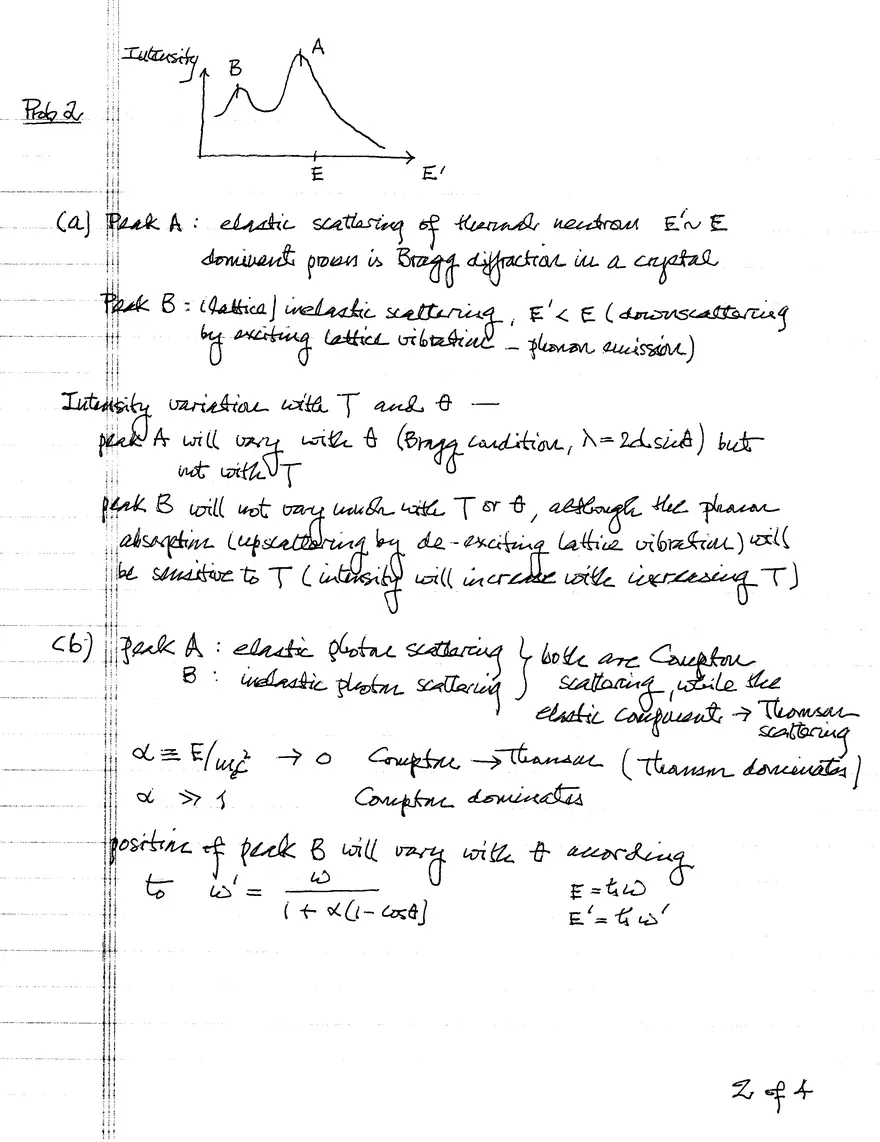 Intensity
A
B
Prob 2
E E'
(a) Peak A : elastic scattering of thermal neutron E'~E
dominant process is Bragg diffraction in a crystal
Peak B : (lattice) inelastic scattering, E' < E (downscattering
by exciting lattice vibration - phonon emission)
Intensity variation with T and θ —
peak A will vary with θ (Bragg condition, λ = 2d sinθ) but
not with T
peak B will not vary much with T or θ, although the phonon
absorption (upscattering by de-exciting lattice vibration) will
be sensitive to T (intensity will increase with increasing T)
(b) peak A : elastic photon scattering } both are Compton
B : inelastic photon scattering } scattering, while the
elastic component → Thomson
scattering
α ≡ E/mc² → 0 Compton → Thomson (Thomson dominates)
α ≫ 1 Compton dominates
position of peak B will vary with θ according
to ω' = ω / (1 + α(1 - cosθ)) E = ħω
E' = ħω'
2 of 4